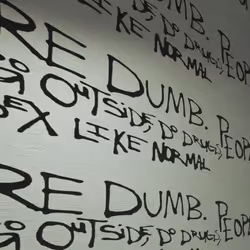 OUTSIDE, DO DRUGS,
LIKE NORMAL
RE DUMB. PEOP
OUTSIDE, DO DRUGS,
EX LIKE NORMAL
RE DUMB. PEOP
OUTSIDE, DO DRUGS,